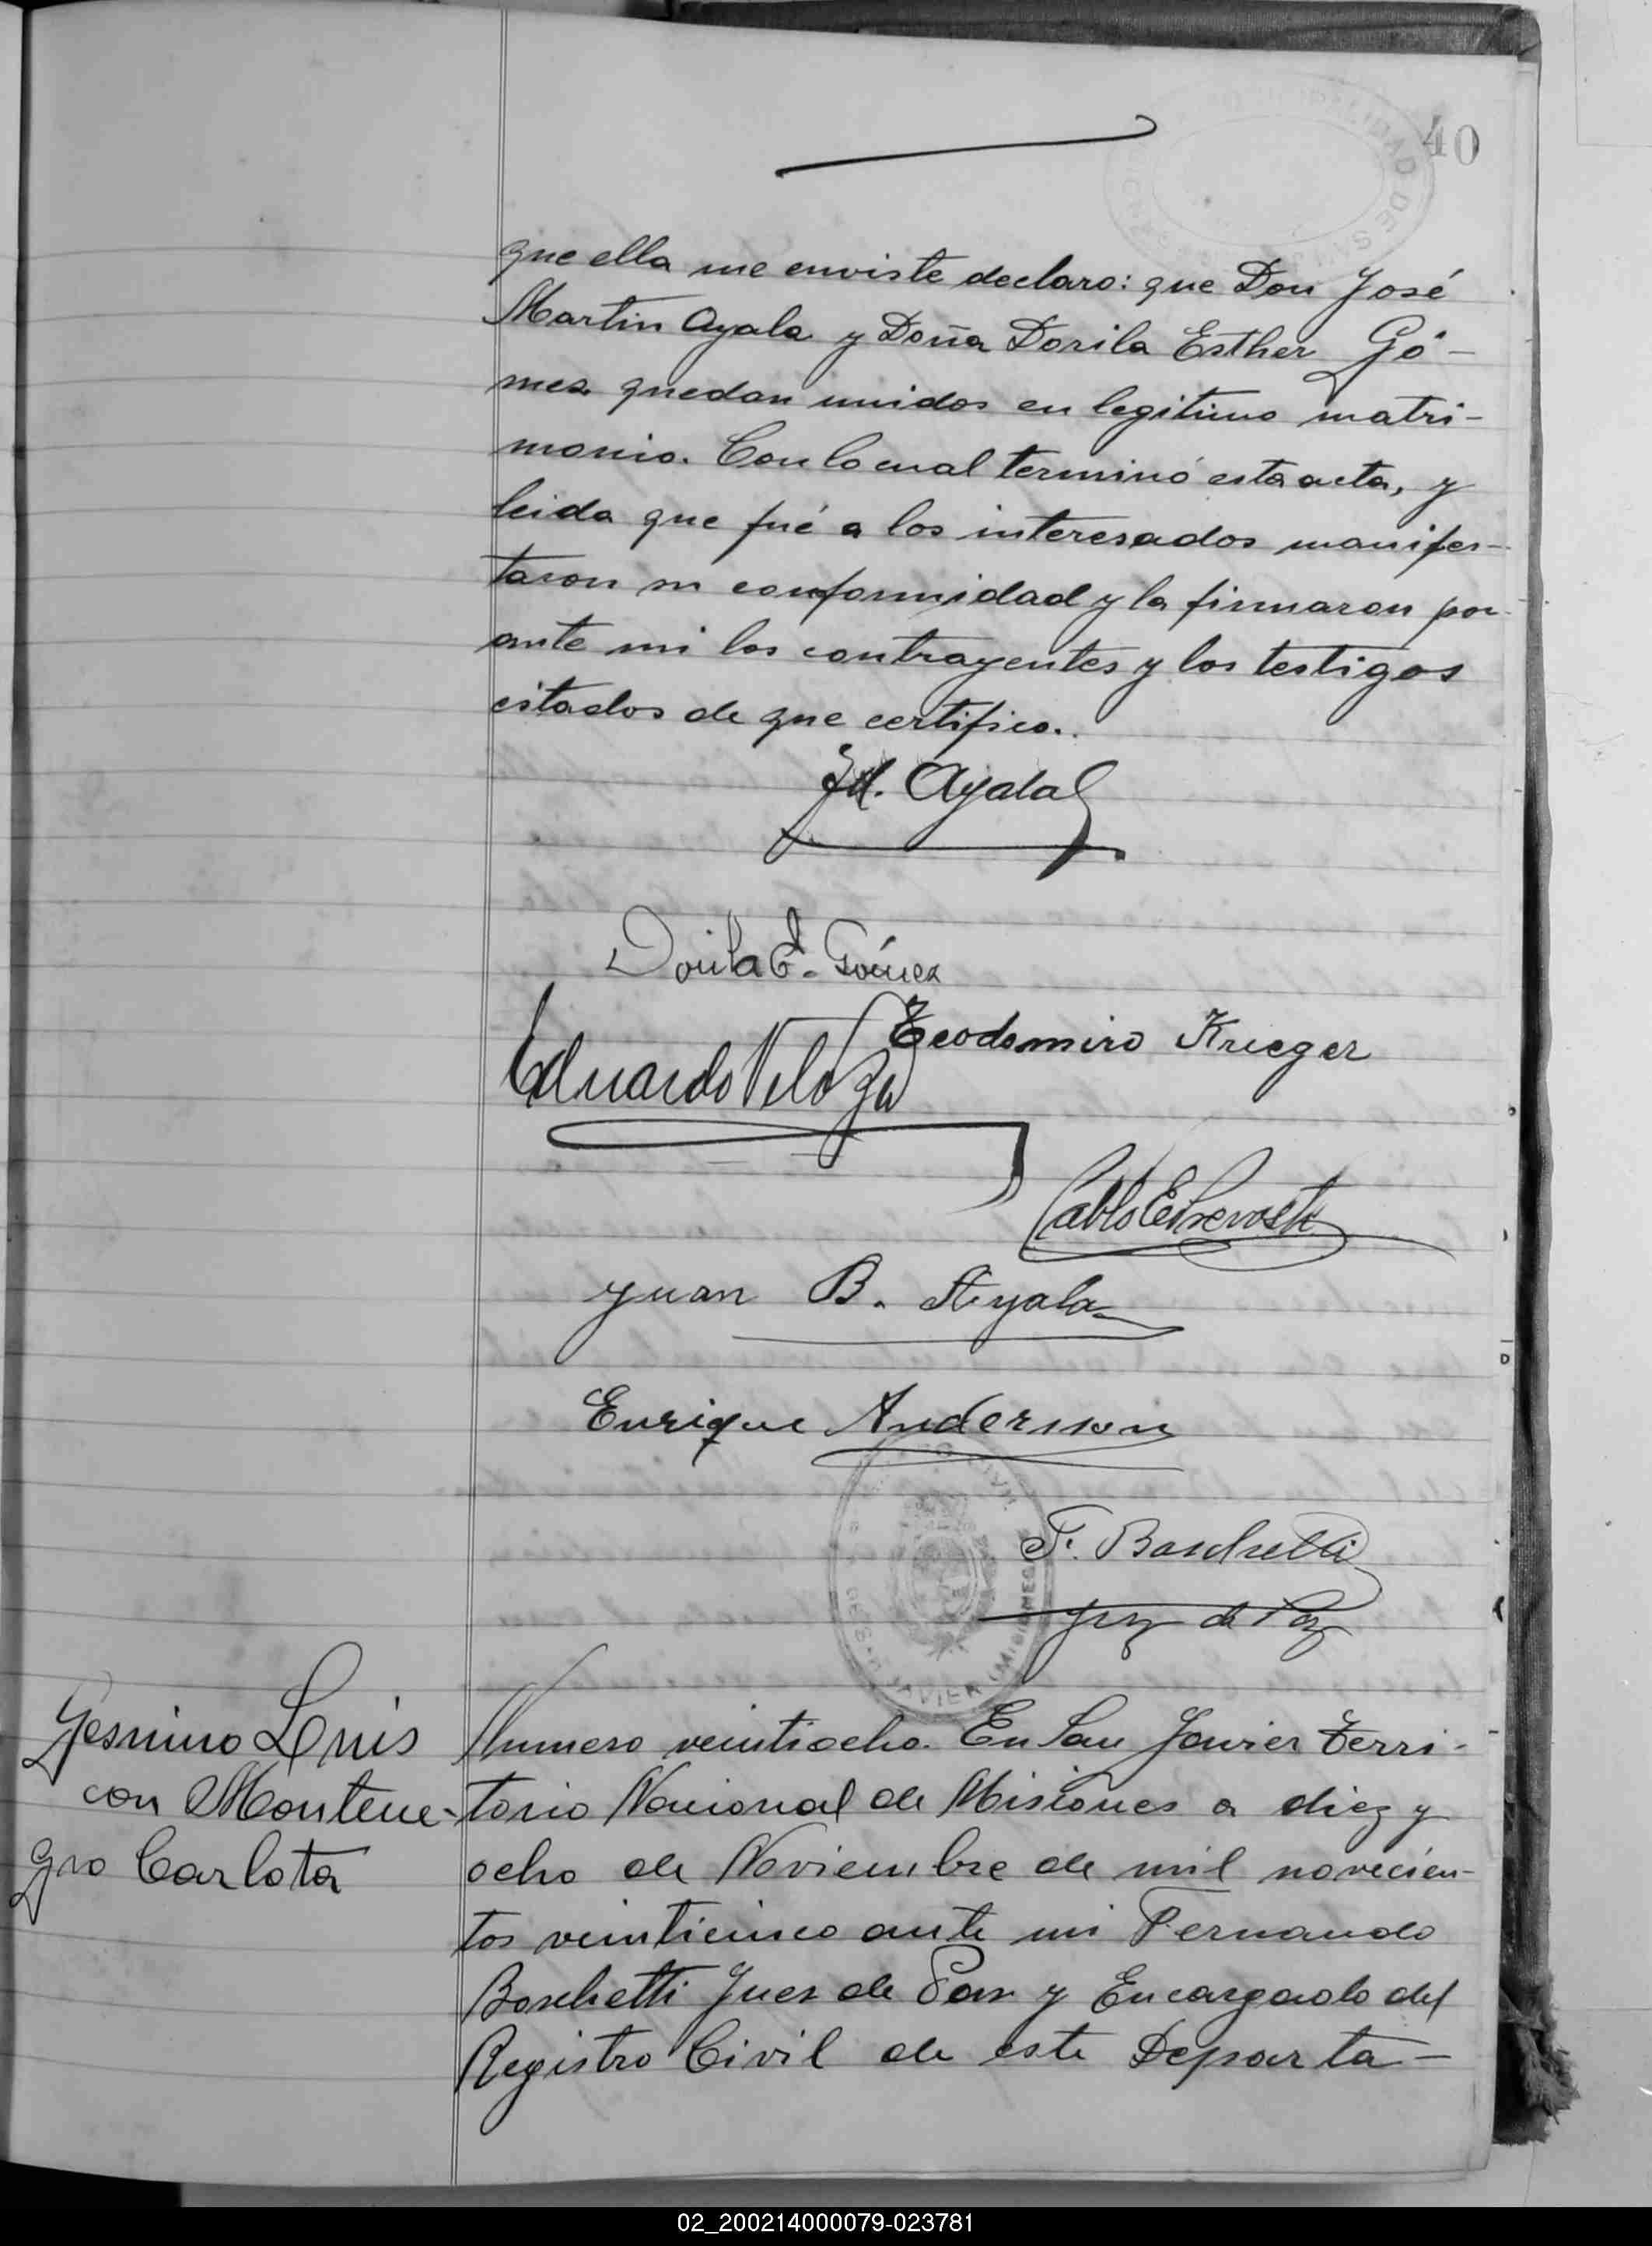 40
que ella me enviste declaro: que Don José
Martin Ayala y Doña Dorila Esther Gó-
mez quedan unidos en legitimo matri-
monio. Con lo cual terminó esta acta, y
leida que fué a los interesados manifes-
taron su conformidad y la firmaron por
ante mi los contrayentes y los testigos
citados de que certifico.
JM. Ayala
Dorila E. Gómez
Teodomiro Krieger
Eduardo Veloza
Pablo
Juan B. Ayala
Enrique Andersson
F. Boschetti
Juez de Paz
Luis
con Montene-
gro Carlota
Numero veintiocho. En San Javier Terri-
torio Nacional de Misiones a diez y
ocho de Noviembre de mil novecien-
tos veinticinco ante mi Fernando
Boschetti Juez de Paz y Encargado del
Registro Civil de este Departa-
02_200214000079-023781